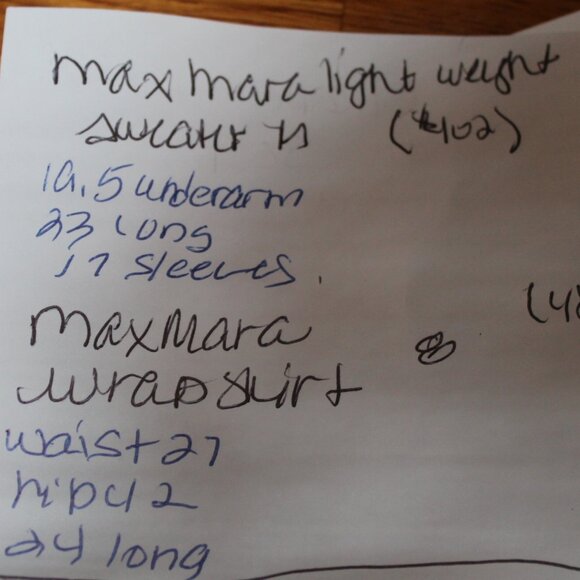 max mara light weight
sweater (#402)
19.5 underarm
23 long
17 sleeves.
maxmara 8
wrap skirt
waist 27
hip 42
24 long